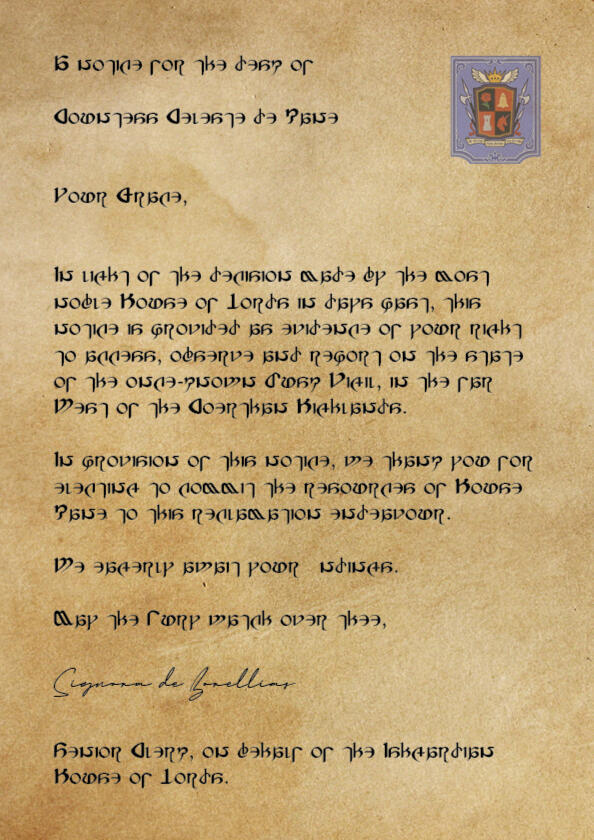 A notice for the desk of
Countess Celeste de Kane
Your Grace,
In light of the decision made by the most
noble House of Lords in days past, this
notice is provided as evidence of your right
to access, observe and report on the state
of the once-known Dusk Vigil, in the far
West of the Coerthan Highlands.
In provision of this notice, we thank you for
electing to commit the resources of House
Kane to this reclamation endeavour.
We eagerly await your ndings.
May the Fury watch over thee,
Signora de Borellias
Senior Clerk, on behalf of the Ishgardian
House of Lords.